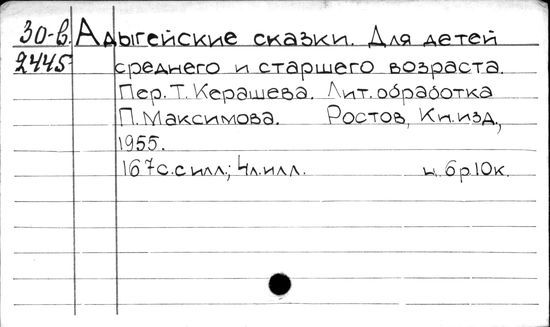 30-в. Адыгейские сказки. Для детей
2445 среднего и старшего возраста.
Пер. Т. Керашева. Лит. обработка
П. Максимова. Ростов, Кн. изд.,
1955.
167 с. с илл.; 4 л. илл. ц. 6р. 10к.